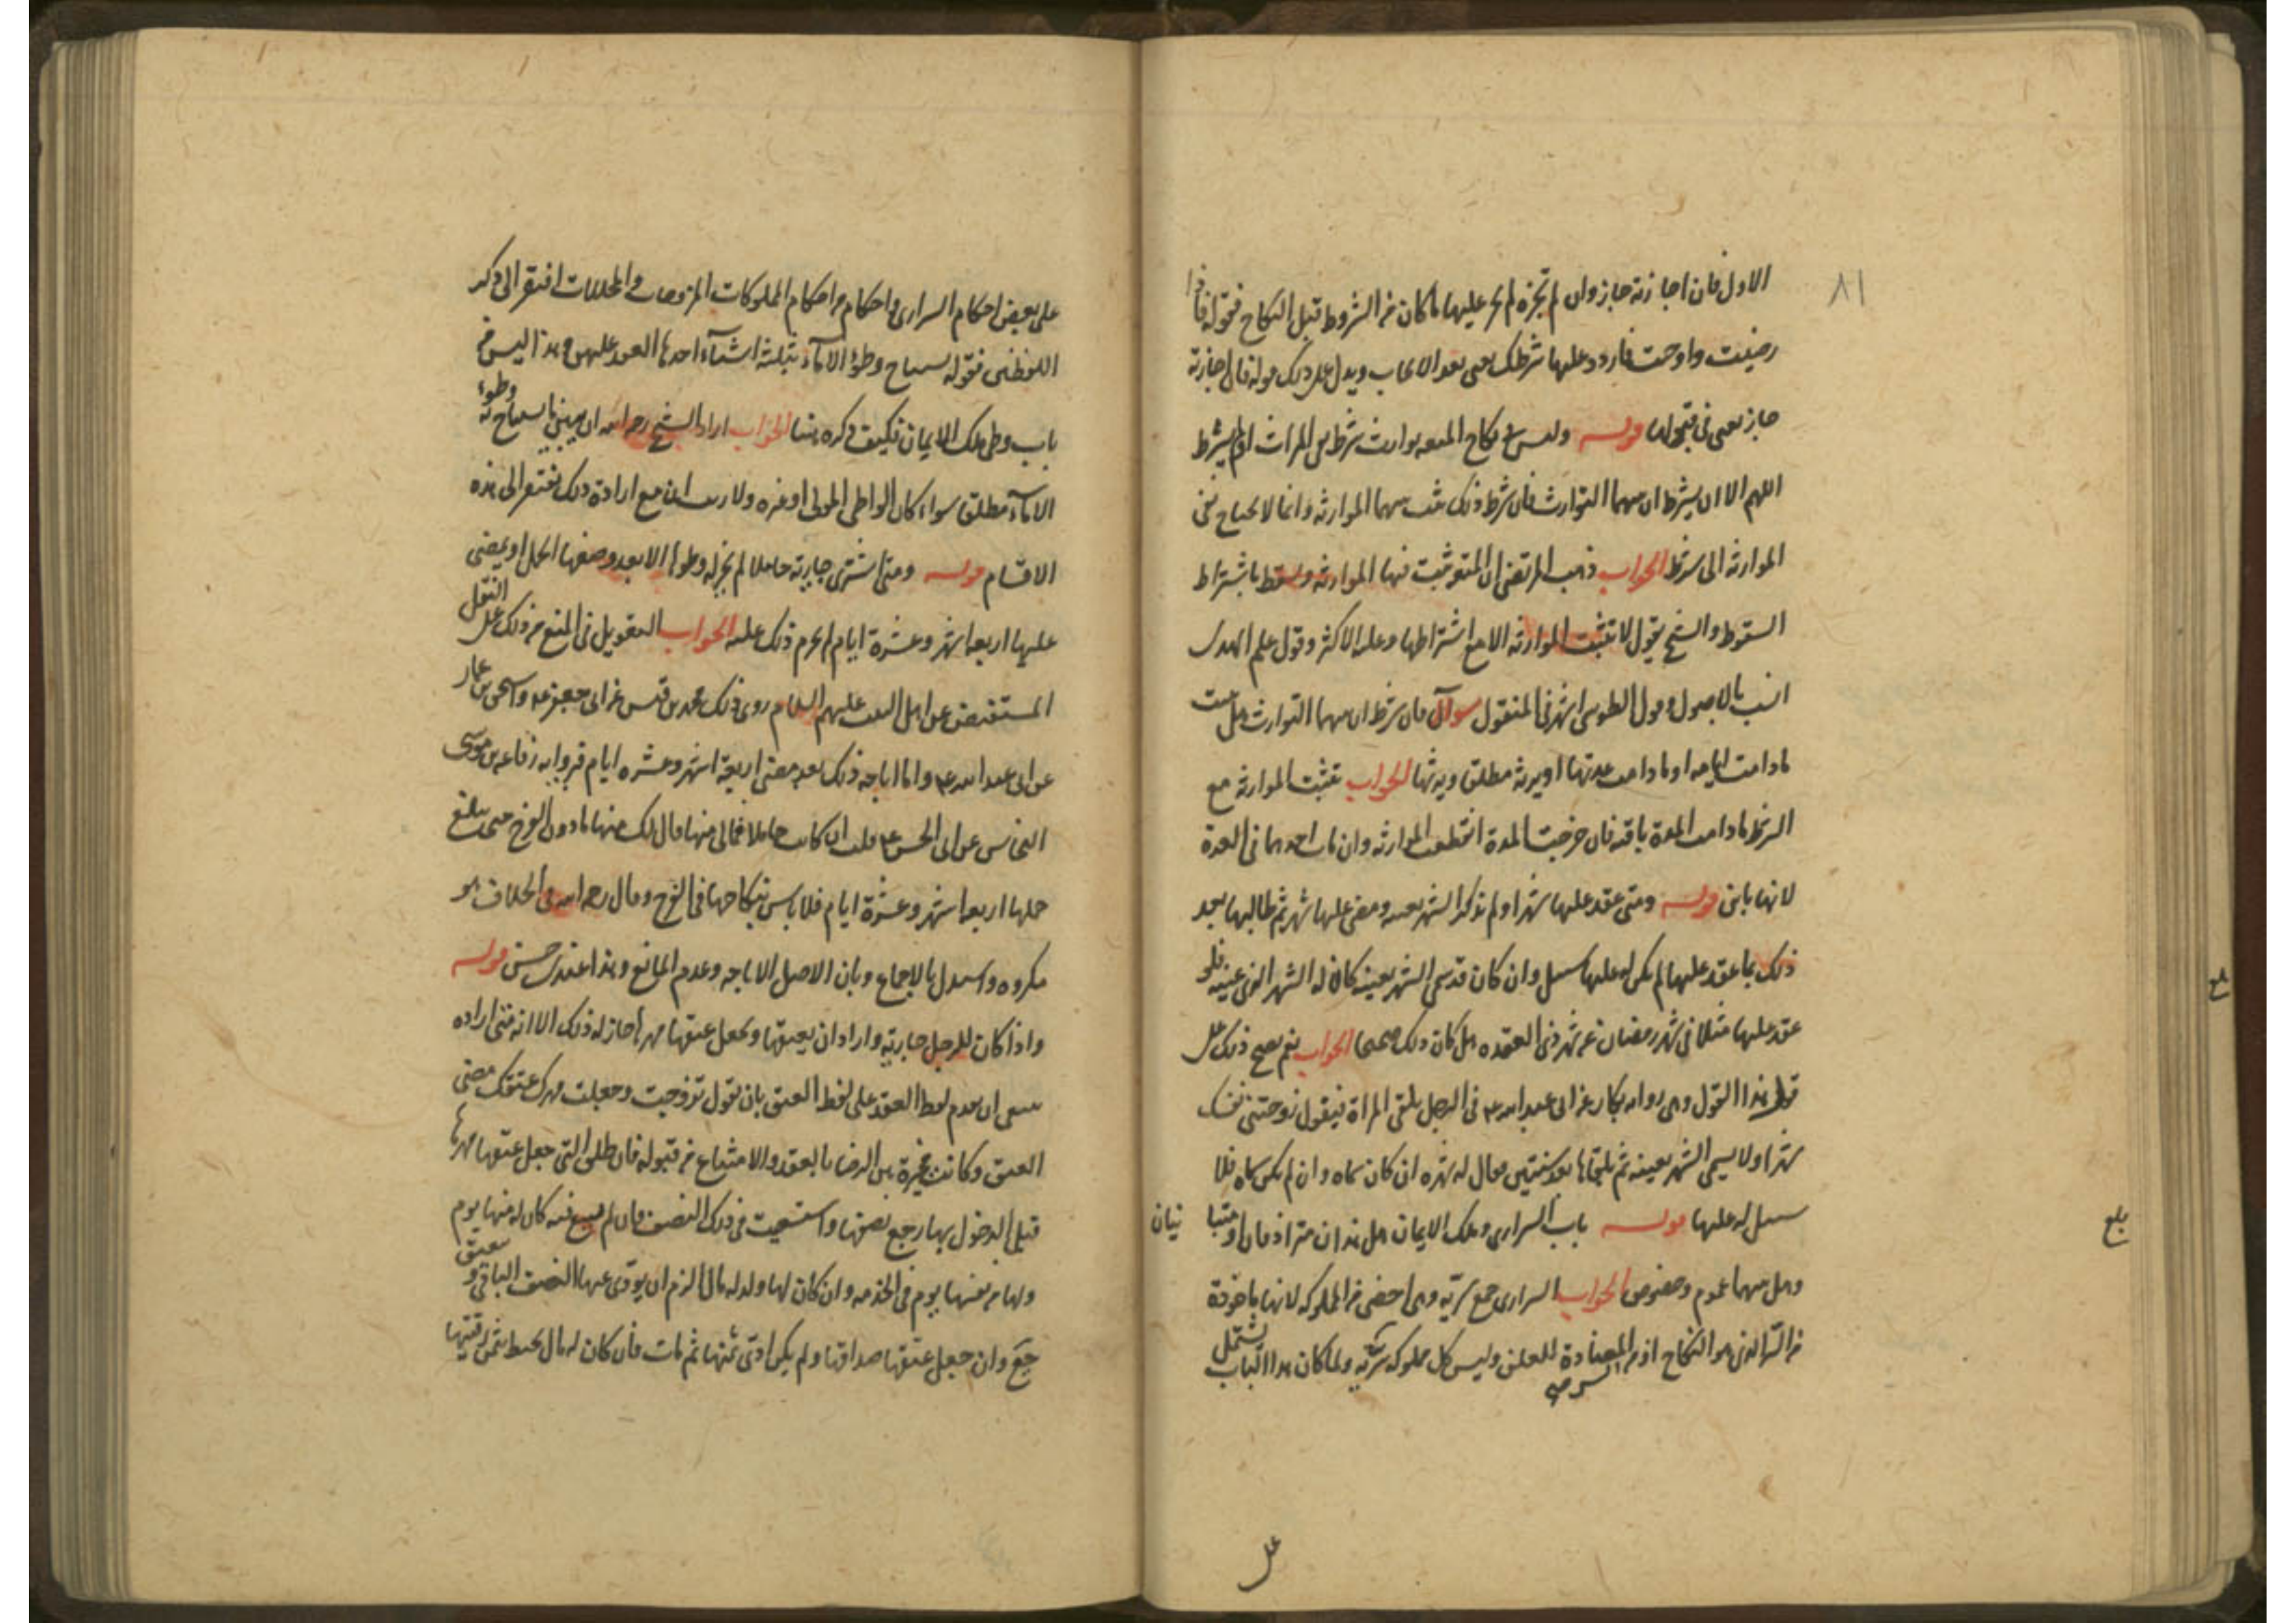 ٨١
الاول فان اجازته جاز وان لم تجزه لم يجز عليها ما كان من الشروط قبل النكاح فقوله فاذا
رضيت واوجبت فاردد عليها شرطك يعنى بعد الايجاب ويدل على ذلك قوله فان اجازته
جاز يعنى فى قبولها قوله وليس فى نكاح المتعه توارث شرط نفى الميراث او لم يشترط
اللهم الا ان يشترط ان بينهما التوارث فان شرط ذلك ثبت بينهما الموارثه وانما لا يحتاج نفى
الموارثه الى شرط الجواب ذهب المرتضى ان المتعه تثبت فيها الموارثه وتسقط باشتراط
السقوط والشيخ يقول لا تثبت الموارثه الا مع اشتراطها وعليه الاكثر وقول علم الهدى
انسب بالاصول وقول الطوسى اشهر فى المنقول سؤال فان شرط ان بينهما التوارث هل يثبت
مادامت ايامه او مادامت عدتها او يرثه مطلقا ويرثها الجواب تثبت الموارثه مع
الشرط مادامت المدة باقيه فان خرجت المدة انقطعت الموارثه وان مات احدهما فى العدة
لانها باين قوله ومتى عقد عليها شهرا ولم يذكر الشهر بعينه ومضى عليها شهر ثم طالبها بعد
ذلك بما عقد عليها لم يكن له عليها سبيل وان كان قد سمى الشهر بعينه كان له الشهر الذى عينه فلو
عقد عليها مثلا فى شهر رمضان عن شهر ذى القعده هل كان ذلك صحيحا الجواب نعم يصح ذلك على
قوله هذا القول وهى روايه بكار عن ابى عبد الله ع فى الرجل يلقى المراة فيقول زوجتنى نفسك
شهرا ولا يسمى الشهر بعينه ثم يلقاها بعد سنتين فقال له شهره ان كان سماه وان لم يكن سماه فلا
سبيل له عليها قوله باب السرارى وملك الايمان هل هذان مترادفان او متباينان
وهل بينهما عموم وخصوص الجواب السرارى جمع سريه وهى اخص من المملوكه لانها ماخوذة
من السر الذى هو النكاح او من السر المضادة للعلن وليس كل مملوكه سريه ولما كان هذا الباب يشتمل
على
بلغ
بلغ
على بعض احكام السرارى واحكام من احكام المملوكات المزوجات والمحللات افتقر الى ذكر
اللفظين قوله يستباح وطؤ الاماء بثلثه اشياء احدها العقد عليهن وهذا ليس من
باب وطى ملك الايمان فكيف ذكره هنا الجواب اراد الشيخ رحمه الله ان يبين ما يستباح به وطؤ
الاماء مطلقا سواء كان الواطى المولى او غيره ولا ريب ان مع ارادة ذلك يفتقر الى هذه
الاقسام قوله ومتى اشترى جارية حاملا لم يجز له وطؤها الا بعد وضعها الحمل او يمضى
عليها اربعة اشهر وعشرة ايام لم يحرم ذلك عليه الجواب التعويل فى المنع من ذلك على النقل
المستفيض عن اهل البيت عليهم السلام روى ذلك محمد بن قيس عن ابى جعفر ع واسحق بن عمار
عن ابى عبد الله ع واما اباحه ذلك بعد مضى اربعة اشهر وعشره ايام فروايه رفاعه بن موسى
النخاس عن ابى الحسن ع قلت ان كانت حاملا فمالى منها قال لك منها مادون الفرج حتى يبلغ
حملها اربعة اشهر وعشرة ايام فلا باس بنكاحها فى الفرج وقال رحمه الله فى الخلاف هو
مكروه واستدل بالاجماع وبان الاصل الاباحه وعدم المانع وهذا عندى حسن قوله
واذا كان للرجل جارية واراد ان يعتقها ويجعل عتقها مهرها جاز له ذلك الا انه متى اراده
ينبغى ان يقدم لفظ العقد على لفظ العتق بان يقول تزوجتك وجعلت مهرك عتقك مضى
العتق وكانت مخيرة بين الرضا بالعقد والامتناع من قبوله فان طلق التى جعل عتقها مهرها
قبل الدخول بها رجع نصفها واستسعيت فى ذلك النصف فان لم تسع فيه كان له منها يوم
ولها من نفسها يوم فى الخدمه وان كان لها ولد له مال الزم ان يؤدى عنها النصف الباقى وتنعتق
جمع وان جعل عتقها صداقها ولم يكن ادى ثمنها ثم مات فان كان له مال يحيط بثمن رقبتها